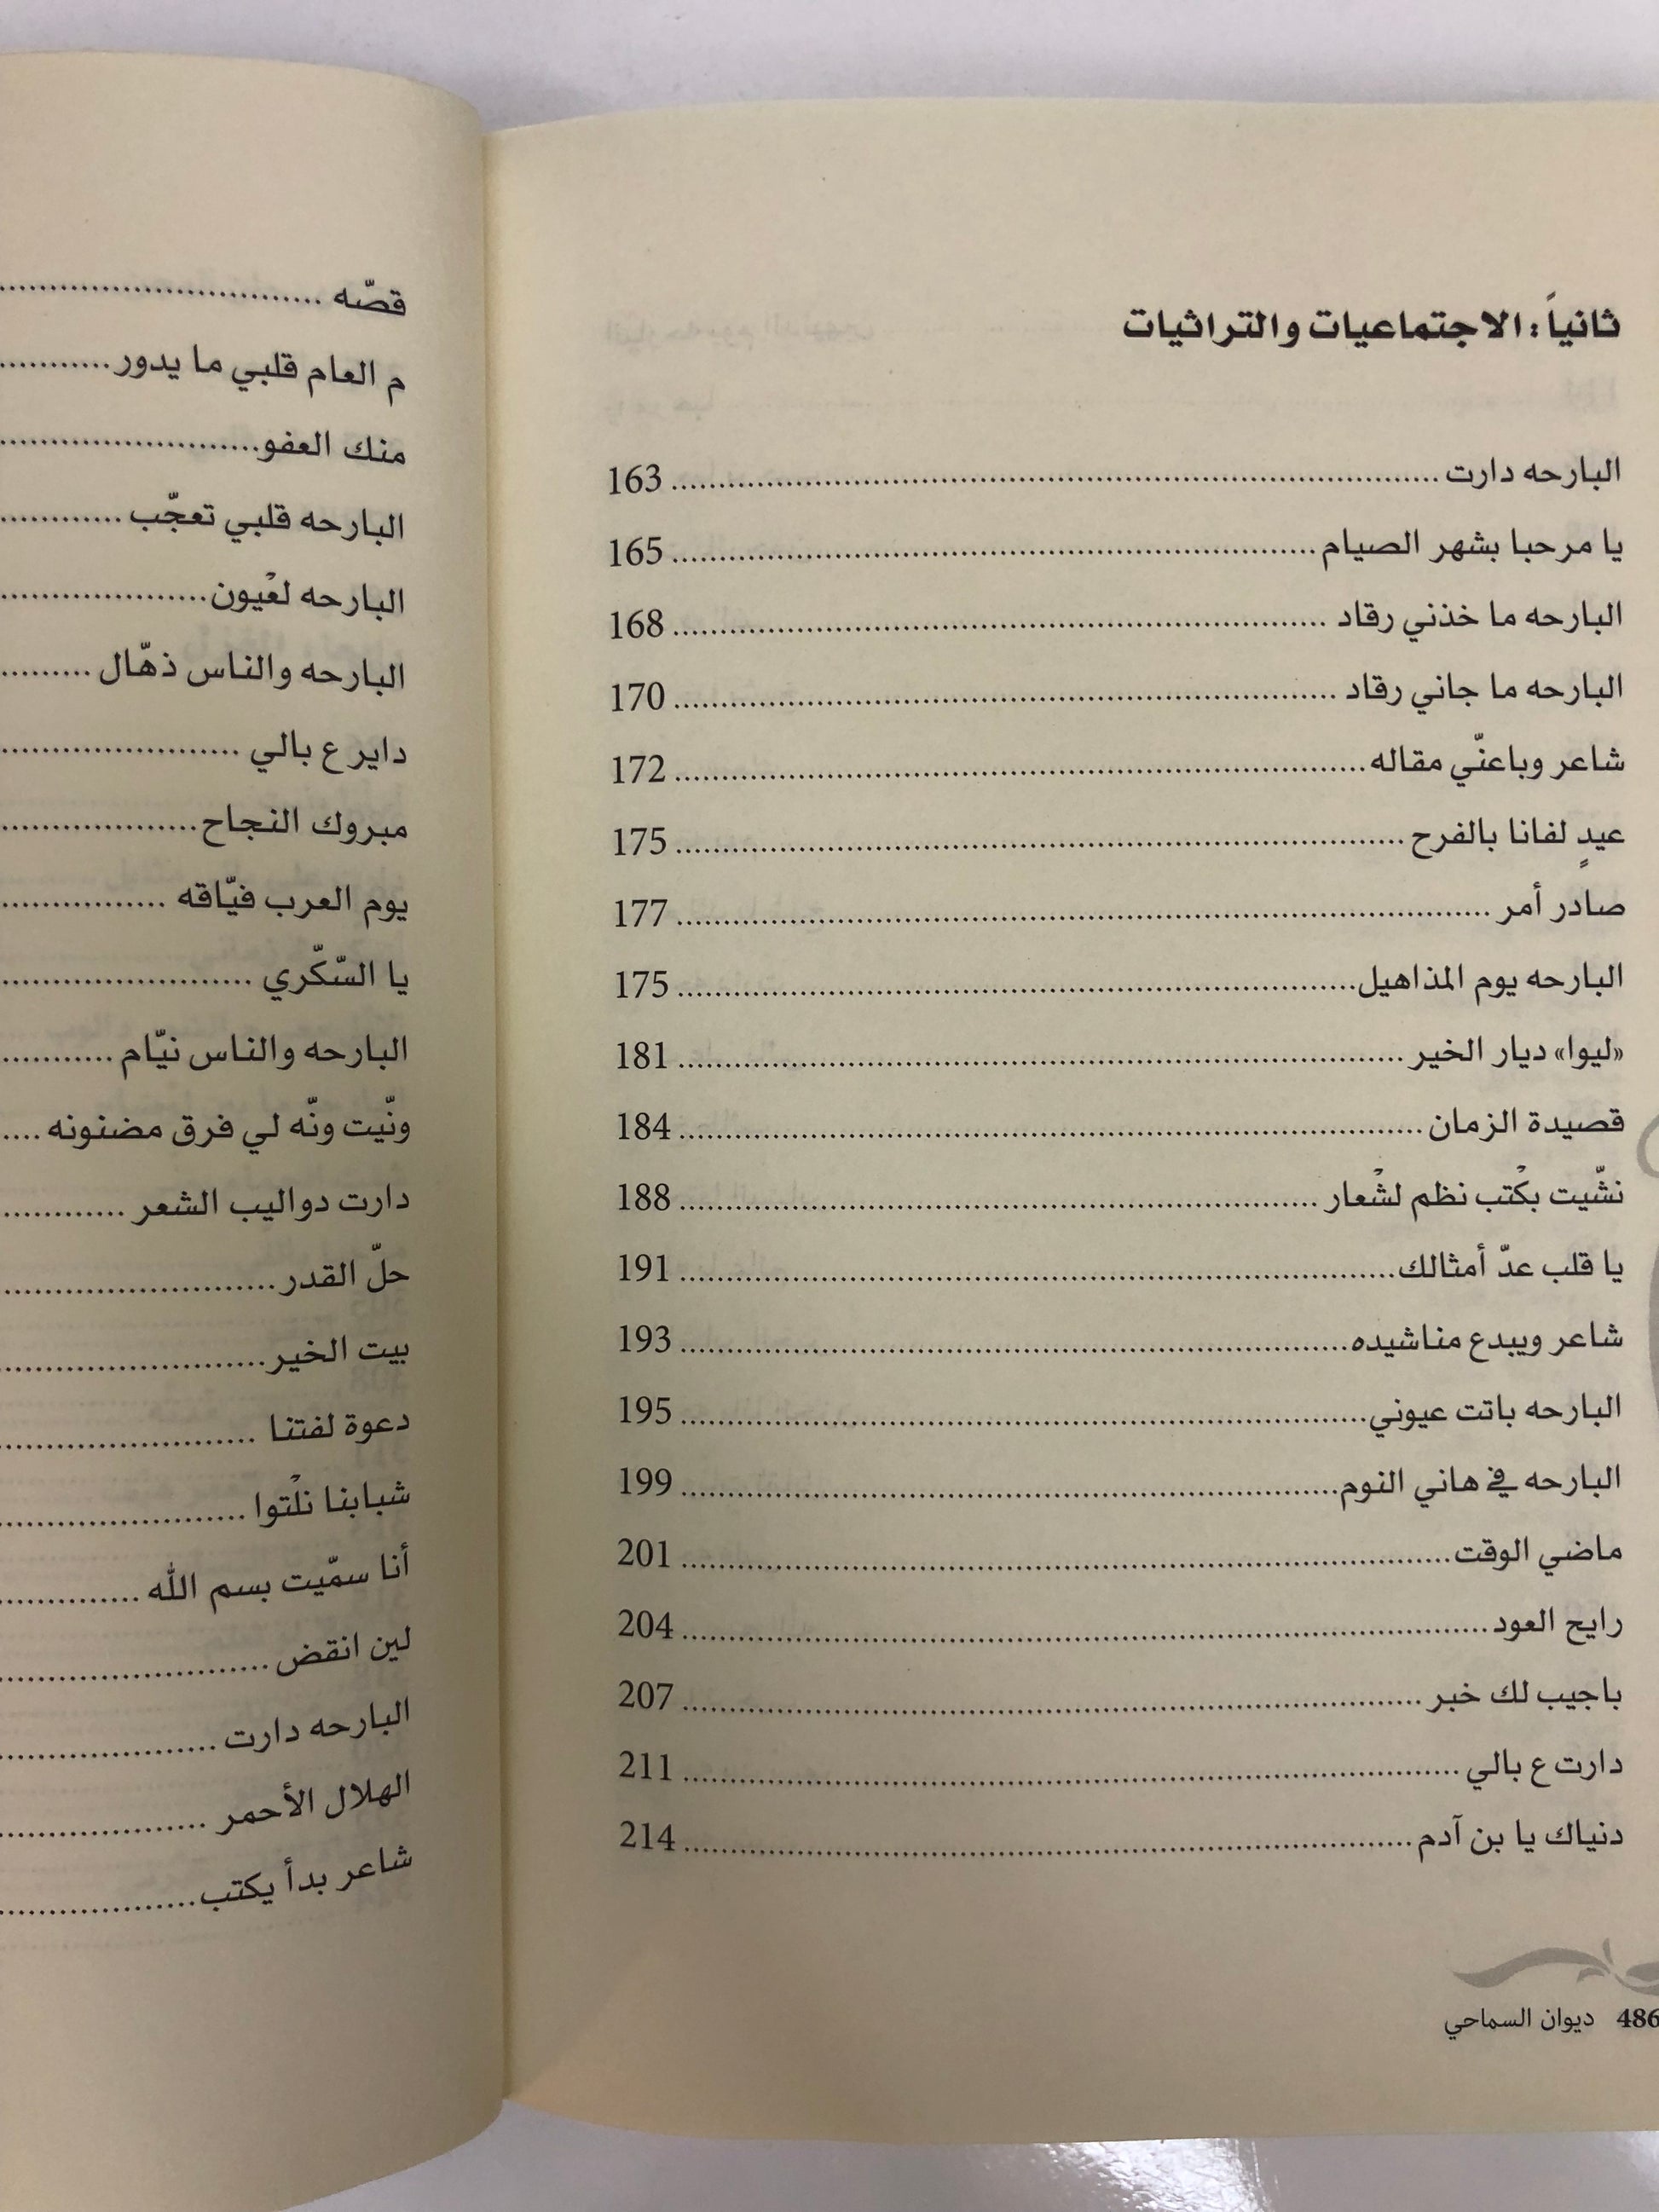 ثانياً: الاجتماعيات والتراثيات
البارحه دارت ........ 163
يا مرحبا بشهر الصيام ........ 165
البارحه ما خذني رقاد ........ 168
البارحه ما جاني رقاد ........ 170
شاعر وباعنّي مقاله ........ 172
عيدٍ لفانا بالفرح ........ 175
صادر أمر ........ 177
البارحه يوم المذاهيل ........ 175
«ليوا» ديار الخير ........ 181
قصيدة الزمان ........ 184
نشّيت بكْتب نظم لشْعار ........ 188
يا قلب عدّ أمثالك ........ 191
شاعر ويبدع مناشيده ........ 193
البارحه باتت عيوني ........ 195
البارحه في هاني النوم ........ 199
ماضي الوقت ........ 201
رايح العود ........ 204
باجيب لك خبر ........ 207
دارت ع بالي ........ 211
دنياك يا بن آدم ........ 214
486 ديوان السماحي
قصّه ........
م العام قلبي ما يدور ........
منك العفو ........
البارحه قلبي تعجّب ........
البارحه لعْيون ........
البارحه والناس ذهّال ........
داير ع بالي ........
مبروك النجاح ........
يوم العرب فيّاقه ........
يا السّكّري ........
البارحه والناس نيّام ........
ونّيت ونّه لي فرق مضنونه ....
دارت دواليب الشعر ........
حلّ القدر ........
بيت الخير ........
دعوة لفتنا ........
شبابنا نلْتوا ........
أنا سمّيت بسم الله ........
لين انقض ........
البارحه دارت ........
الهلال الأحمر ........
شاعر بدأ يكتب ........